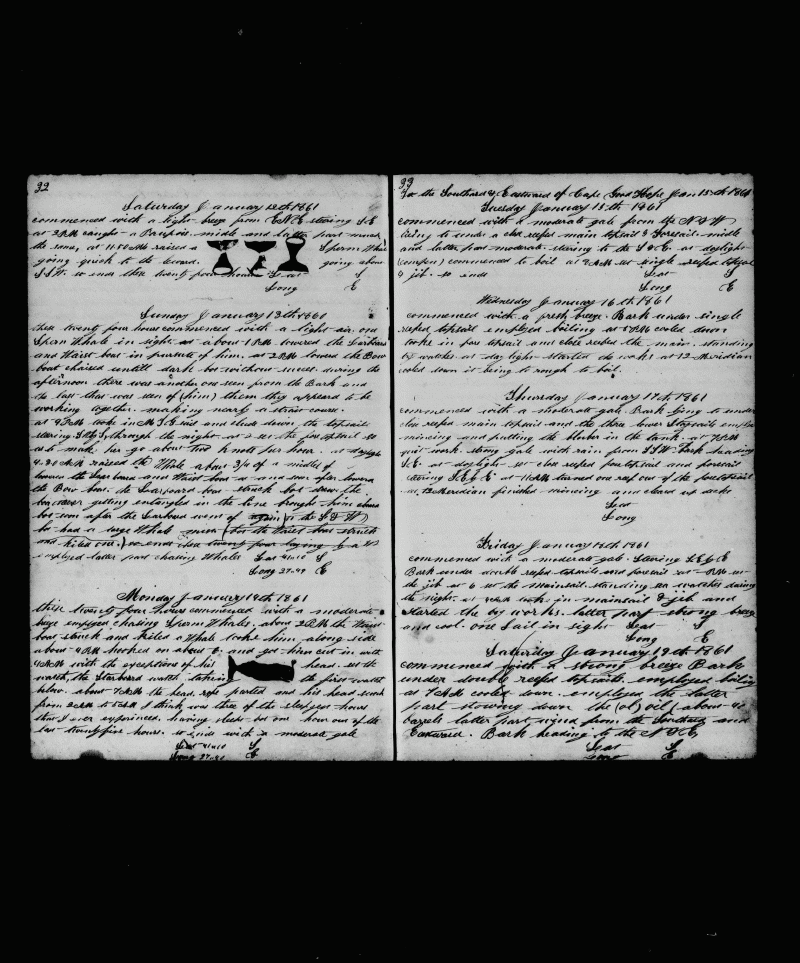 32
Saturday January 12th 1861
commenced with a light breeze from ENE steering S.E
at 2 PM caught a Porpois. midle and latter part much
the same, at 11.50 AM raised a Sperm Whale
going quick to the leward. going about
SSW. so ends these twenty four hours Lat S
Long E
Sunday January 13th 1861
these twenty four hours commenced with a light air. one
Sperm Whale in sight at about 1 PM lowered the Larboard
and Waist boat in pursute of him. at 2 PM lowered the Bow
boat chaised untill dark but without sucess. during the
afternoon there was another one seen from the Bark and
the last that was seen of (him) them they apeared to be
working together. making nearly a strait course.
at 8 PM took in M.T.G. sail and clued down the topsails
steering through the night at 2 set the fore topsail so
as to make her go about two knots per hour. at daylight
4-30 AM raised the Whale about 3/4 of a mild of
lowerd the Larboard and Waist boat and soon after lowerd
the Bow boat. the Larboard boat struck but drew the
boat soon after the Larboard went of again
he had a large Whale (but the Waist boat struck
and killed one.) so ends these twenty four
employed latter part chasing Whales Lat 41.10 S
Long 37.49 E
Monday January 14th 1861
these twenty four hours commenced with a moderate
breeze employed chasing Sperm Whales. about 2 PM the Waist
boat struck and killed a Whale took him along side
about 4 PM hooked on about 6. and got him cut in with
4 AM with the exceptions of his head. set the
watch, the Starboard watch takeing the first watch
below. about 7 AM the head rope parted and his head sunk
from 2 AM to 5 AM I think was three of the sleepyes hours
that I ever experienced. having slept but one hour out of the
last twenty five hours. so ends with a moderate gale
Lat 41.10 S
Long 37.21 E
33
To the Southard & Eastward of Cape Good Hope Jan 15th 1861
Tuesday January 15th 1861
commenced with a moderate gale from the N & W
lieing to under a close reefed main topsail & Foresail. midle
and latter part moderate stering to the S & E. at daylight
commenced to boil at 9 AM set single reefed topsail
& jib. so ends Lat S
Long E
Wednesday January 16th 1861
commenced with a fresh breeze. Bark under single
reefed topsail employed boiling at 5 PM cooled down
tooke in fore topsail and close reefed the main. standing
by watches at day light started the works at 12 Meridian
cooled down it being to rough to boil.
Thursday January 17th 1861
commenced with a moderate gale. Bark lying to under
close reefed main topsail and the three lower Staysails employed
mincing and putting the bluber in the tank. at 7 PM
quit work strong gale with rain from SSW Bark heading
S.E. at daylight set close reefed foretopsail and foresail
steering S.E. by E at 11 AM turned one reef out of the foretopsail
at 12 Meridian finished mincing and cleared up decks
Lat
Long
Friday January 18th 1861
commenced with a moderate gale. Steering S.E by E
Bark under double reefed topsails and foresail set
the jib at 6 set the Mainsail. standing sea watches during
the night. at took in mainsail & jib and
started the try works. latter part strong breeze
and cool. one Sail in sight Lat S
Long E
Saturday January 19th 1861
commenced with a strong breeze Bark
under double reefed topsails employed boiling
at 7 AM cooled down. employed the latter
part stowing down the (ol) oil (about 40
barrels latter part wind from the Southard and
Eastward. Bark heading to the N & E,
Lat S
Long E